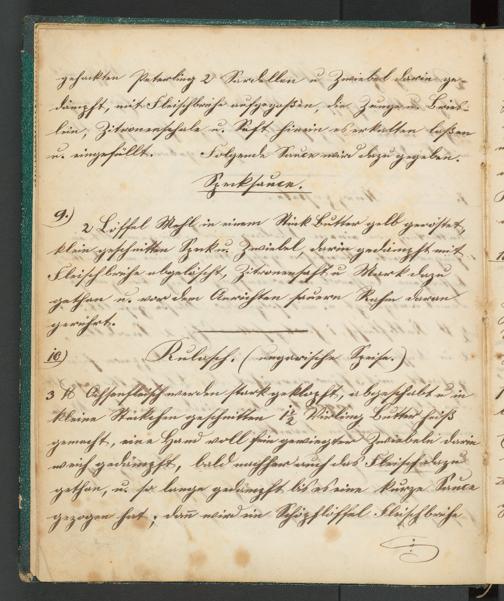 gehackten Peterling 2 Sardellen u. Zwiebel darin ge-
dämpft, mit Fleischbrühe aufgegoßen, die Zunge u. Bries-
lein, Zitronenschale u. Saft, hierin erkalten laßen
u. eingefüllt. Folgende Sauce wird dazu gegeben.
Specksauce.
9.)
2 Löffel Mehl in einem Stück Butter gelb geröstet,
klein geschnitten Speck u. Zwiebel, darin gedämpft mit
Fleischbrühe abgelöscht, Zitronensaft u. Mark dazu
gethan u. vor dem Anrichten sauern Rahm daran
gerührt.
10) Kulasch. (ungarische Speise.)
3 ℔ Ochsenfleisch werden stark geklopft, abgeschabt u. in
kleine Stückchen geschnitten 1½ Vierling Butter heiß
gemacht, eine Hand voll fein gewiegter Zwiebeln darin
weich gedämpft, bald nachher auch das Fleisch dazu
gethan, u. so lange gedämpft bis es eine kurze Sauce
gezogen hat; dann wird ein Schöpflöffel Fleischbrühe